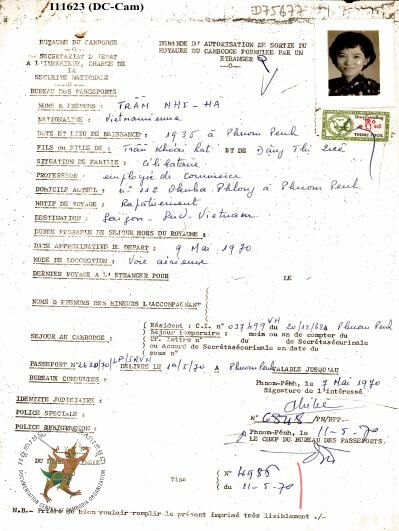 I11623 (DC-Cam)
D75677
ROYAUME DU CAMBODGE
SECRETARIAT D'ETAT
A L'INTERIEUR, CHARGE DE
LA
SECURITE NATIONALE
BUREAU DES PASSEPORTS
DEMANDE D'AUTORISATION DE SORTIE DU
ROYAUME DU CAMBODGE FORMULEE PAR UN
ETRANGER
NOMS & PRENOMS : TRÂN NHI - HA
NATIONALITE : Vietnamienne
DATE ET LIEU DE NAISSANCE : 1935 à Phnom Penh
FILS ou FILLE DE : Trân Khoai ET DE Dặng Thi
SITUATION DE FAMILLE : Célibataire
PROFESSION : employée de commerce
DOMICILE ACTUEL : n° 112 Phlong à Phnom Penh
MOTIF DE VOYAGE : Rapatriement
DESTINATION : Saigon - Sud-Vietnam
DUREE PRESQUE DE SEJOUR HORS DU ROYAUME :
DATE APPROXIMATIVE DU DEPART : 9 Mai 1970
MODE DE LOCOMOTION : Voie aérienne
DERNIER VOYAGE A L'ETRANGER POUR LE
NOMS & PRENOMS DES MINEURS L'ACCOMPAGNANT
SEJOUR AU CAMBODGE :
Résident : C.I. n° 037499 VH du 20/12/62 à Phnom Penh
Séjour temporaire : mois ou an de compter du
Cf. lettre n° du de Secrétasécurinale
ou Accord de Secrétasécurinale en date du
sous n°
PASSEPORT N° 2630/70/LP/SRVN DELIVRE LE 10/5/70 à Phnom Penh VALABLE JUSQU'AU
BUREAUX CONSULTES :
Phnom-Pênh, le 7 Mai 1970
Signature de l'intéressé
IDENTITE JUDICIAIRE :
POLICE SPECIALE :
POLICE
N° 6848 /PN/BPP.-
Phnom-Pênh, le 11-5-70
LE CHEF DU BUREAU DES PASSEPORTS.
DOCUMENTATION CENTER OF CAMBODIA
Visa
N° 4986
du 11-5-70
N.B.- Prière de bien vouloir remplir le présent imprimé très lisiblement ./-